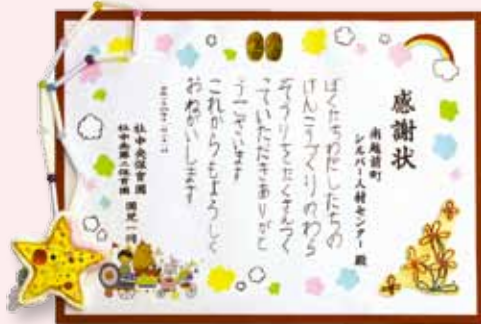 感謝状
南越前町
シルバー人材センター 殿
ぼくたちわたしたちの
けんこうづくりのわら
ぞうりをたくさんつく
っていただきありがと
うございます
これからもよろしく
おねがいします
社中央保育園
社中央第二保育園 園児一同